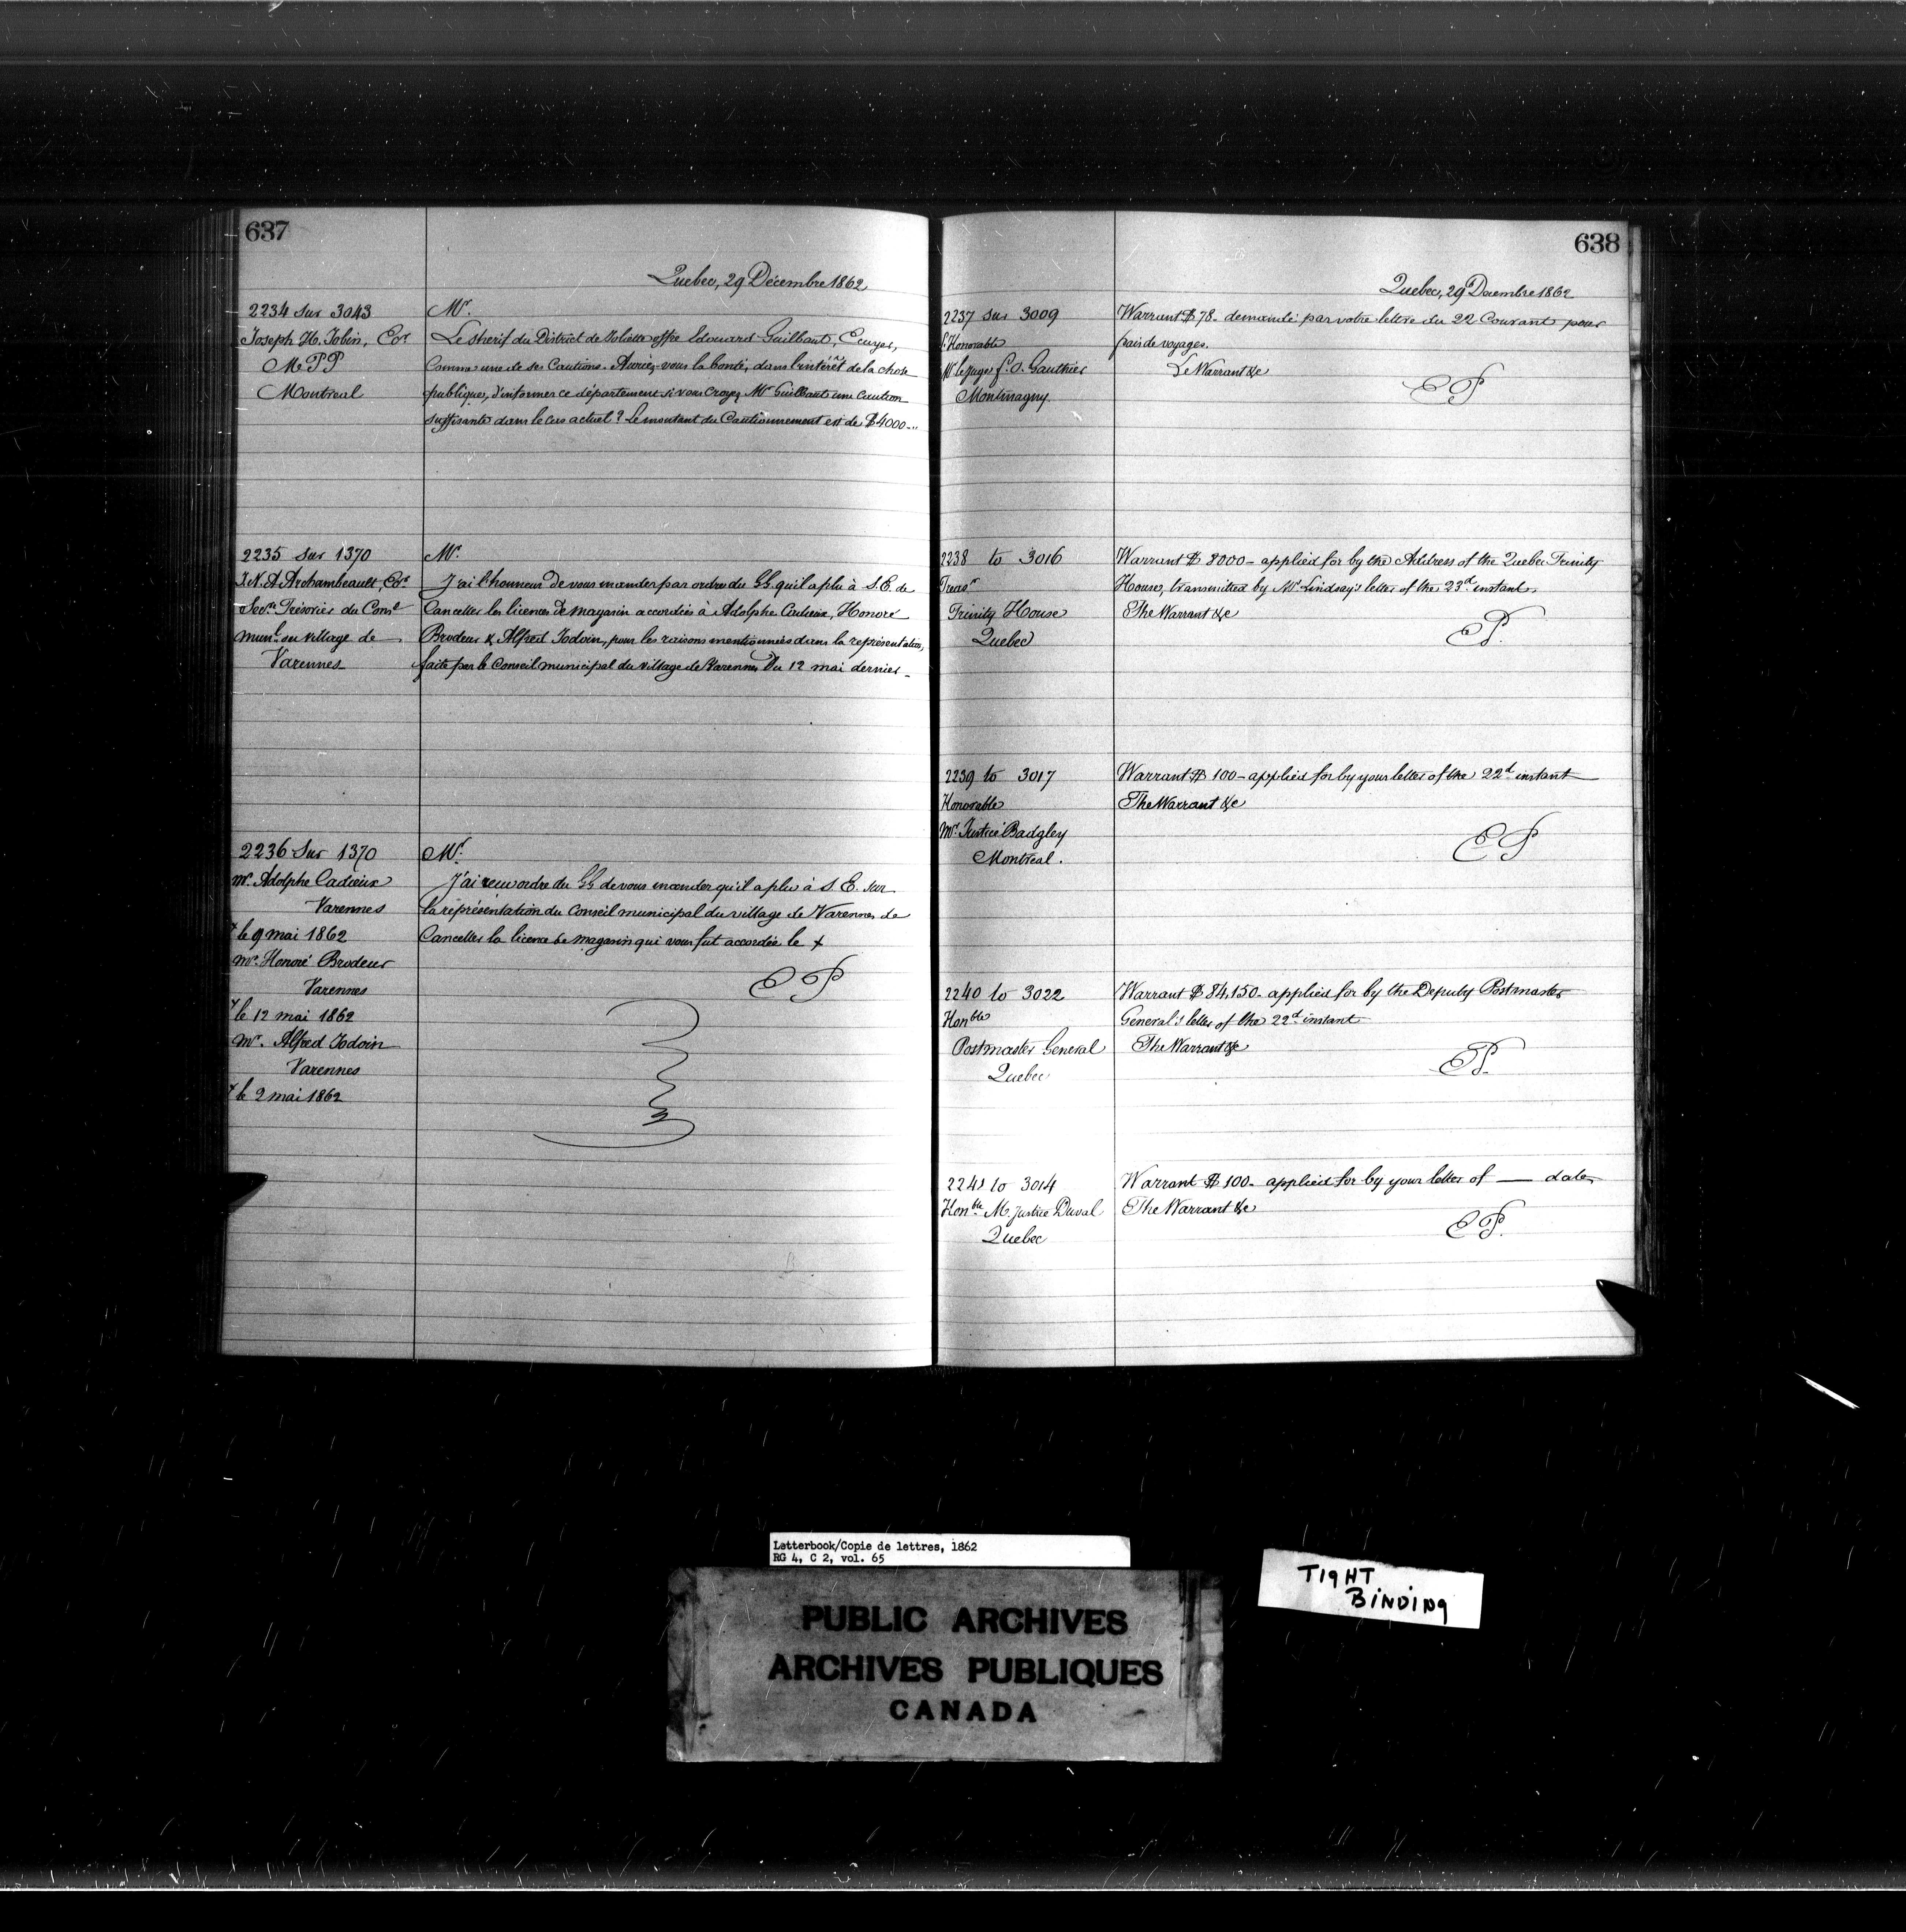 637
Quebec, 29 Décembre 1862
2234 sur 3043
Joseph H. Jobin, Ecr
M P P
Montreal
Mr.
Le Sherif du District de Joliette offre Edouard Guilbault, Ecuyer,
comme une de ses Cautions. Auriez-vous la bonté, dans l'intérêt de la chose
publique, d'informer ce département si vous croyez Mr Guilbault une caution
suffisante dans le cas actuel? Le montant du Cautionnement est de $4000-"
2235 sur 1370
J. N. A. Archambeault, Ecr
Secre Trésorier du Consl
Munl. du Village de
Varennes
Mr.
J'ai l'honneur de vous mander par ordre du GG. qu'il a plu à S. E. de
Canceller les licences de magasin accordées à Adolphe Cadieux, Honoré
Brodeur & Alfred Jodoin, pour les raisons mentionnées dans la représentation,
faite par le Conseil municipal du village de Varennes du 12 mai dernier -
2236 Sur 1370
Mr. Adolphe Cadieux
Varennes
+ le 9 mai 1862
Mr. Honoré Brodeur
Varennes
+ le 12 mai 1862
Mr. Alfred Jodoin
Varennes
+ le 2 mai 1862
Mr.
J'ai reçu ordre du GG de vous mander qu'il a plu à S. E. sur
la représentation du Conseil municipal du village de Varennes de
Canceller la licence de magasin qui vous fut accordée le +
E P
638
Quebec, 29 Decembre 1862
2237 sur 3009
L'Honorable
Mr le juge
Gauthier
Montmagny.
Warrant $78- demandé par votre lettre du 22 Courant pour
frais de voyages.
Le Warrant &c
E P
2238 to 3016
Treasr
Trinity House
Quebec
Warrant $ 8000- applied for by the Address of the Quebec Trinity
House, transmitted by Mr. Lindsay's letter of the 23d. instant.
The Warrant &c
E P.
2239 to 3017
Honorable
Mr. Justice Badgley
Montreal.
Warrant $ 100- applied for by your letter of the 22d. instant
The Warrant &c
E P
2240 to 3022
Honble
Postmaster General
Quebec
Warrant $ 84,150- applied for by the Deputy Postmaster
General's letter of the 22d. instant
The Warrant &c
E P.
2241 to 3014
Honble. M. Justice Duval
Quebec
Warrant $ 100- applied for by your letter of — date
The Warrant &c
E P.
Letterbook/Copie de lettres, 1862
RG 4, C 2, vol. 65
PUBLIC ARCHIVES
ARCHIVES PUBLIQUES
CANADA
TIGHT
BINDING